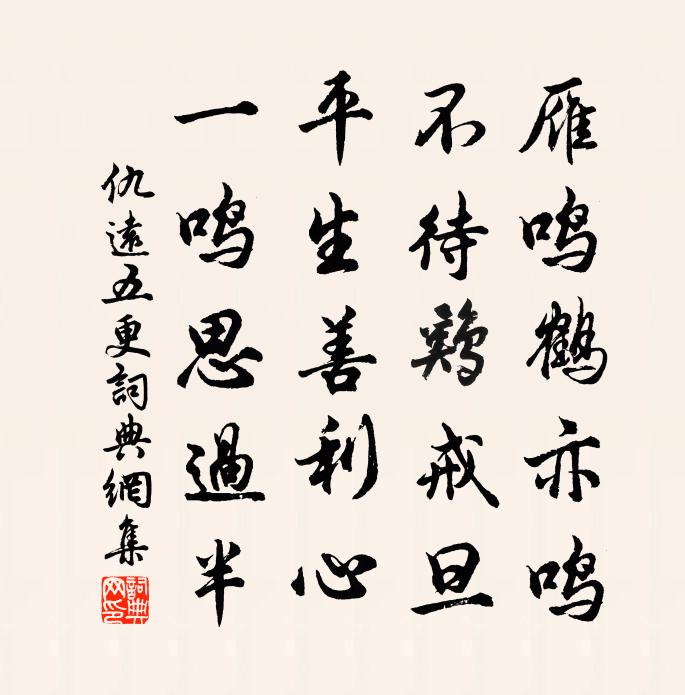 雁鸣鹤亦鸣
不待鷄戒旦
平生善利心
一鸣思過半
仇遠五更詞典網集
詞典
网印